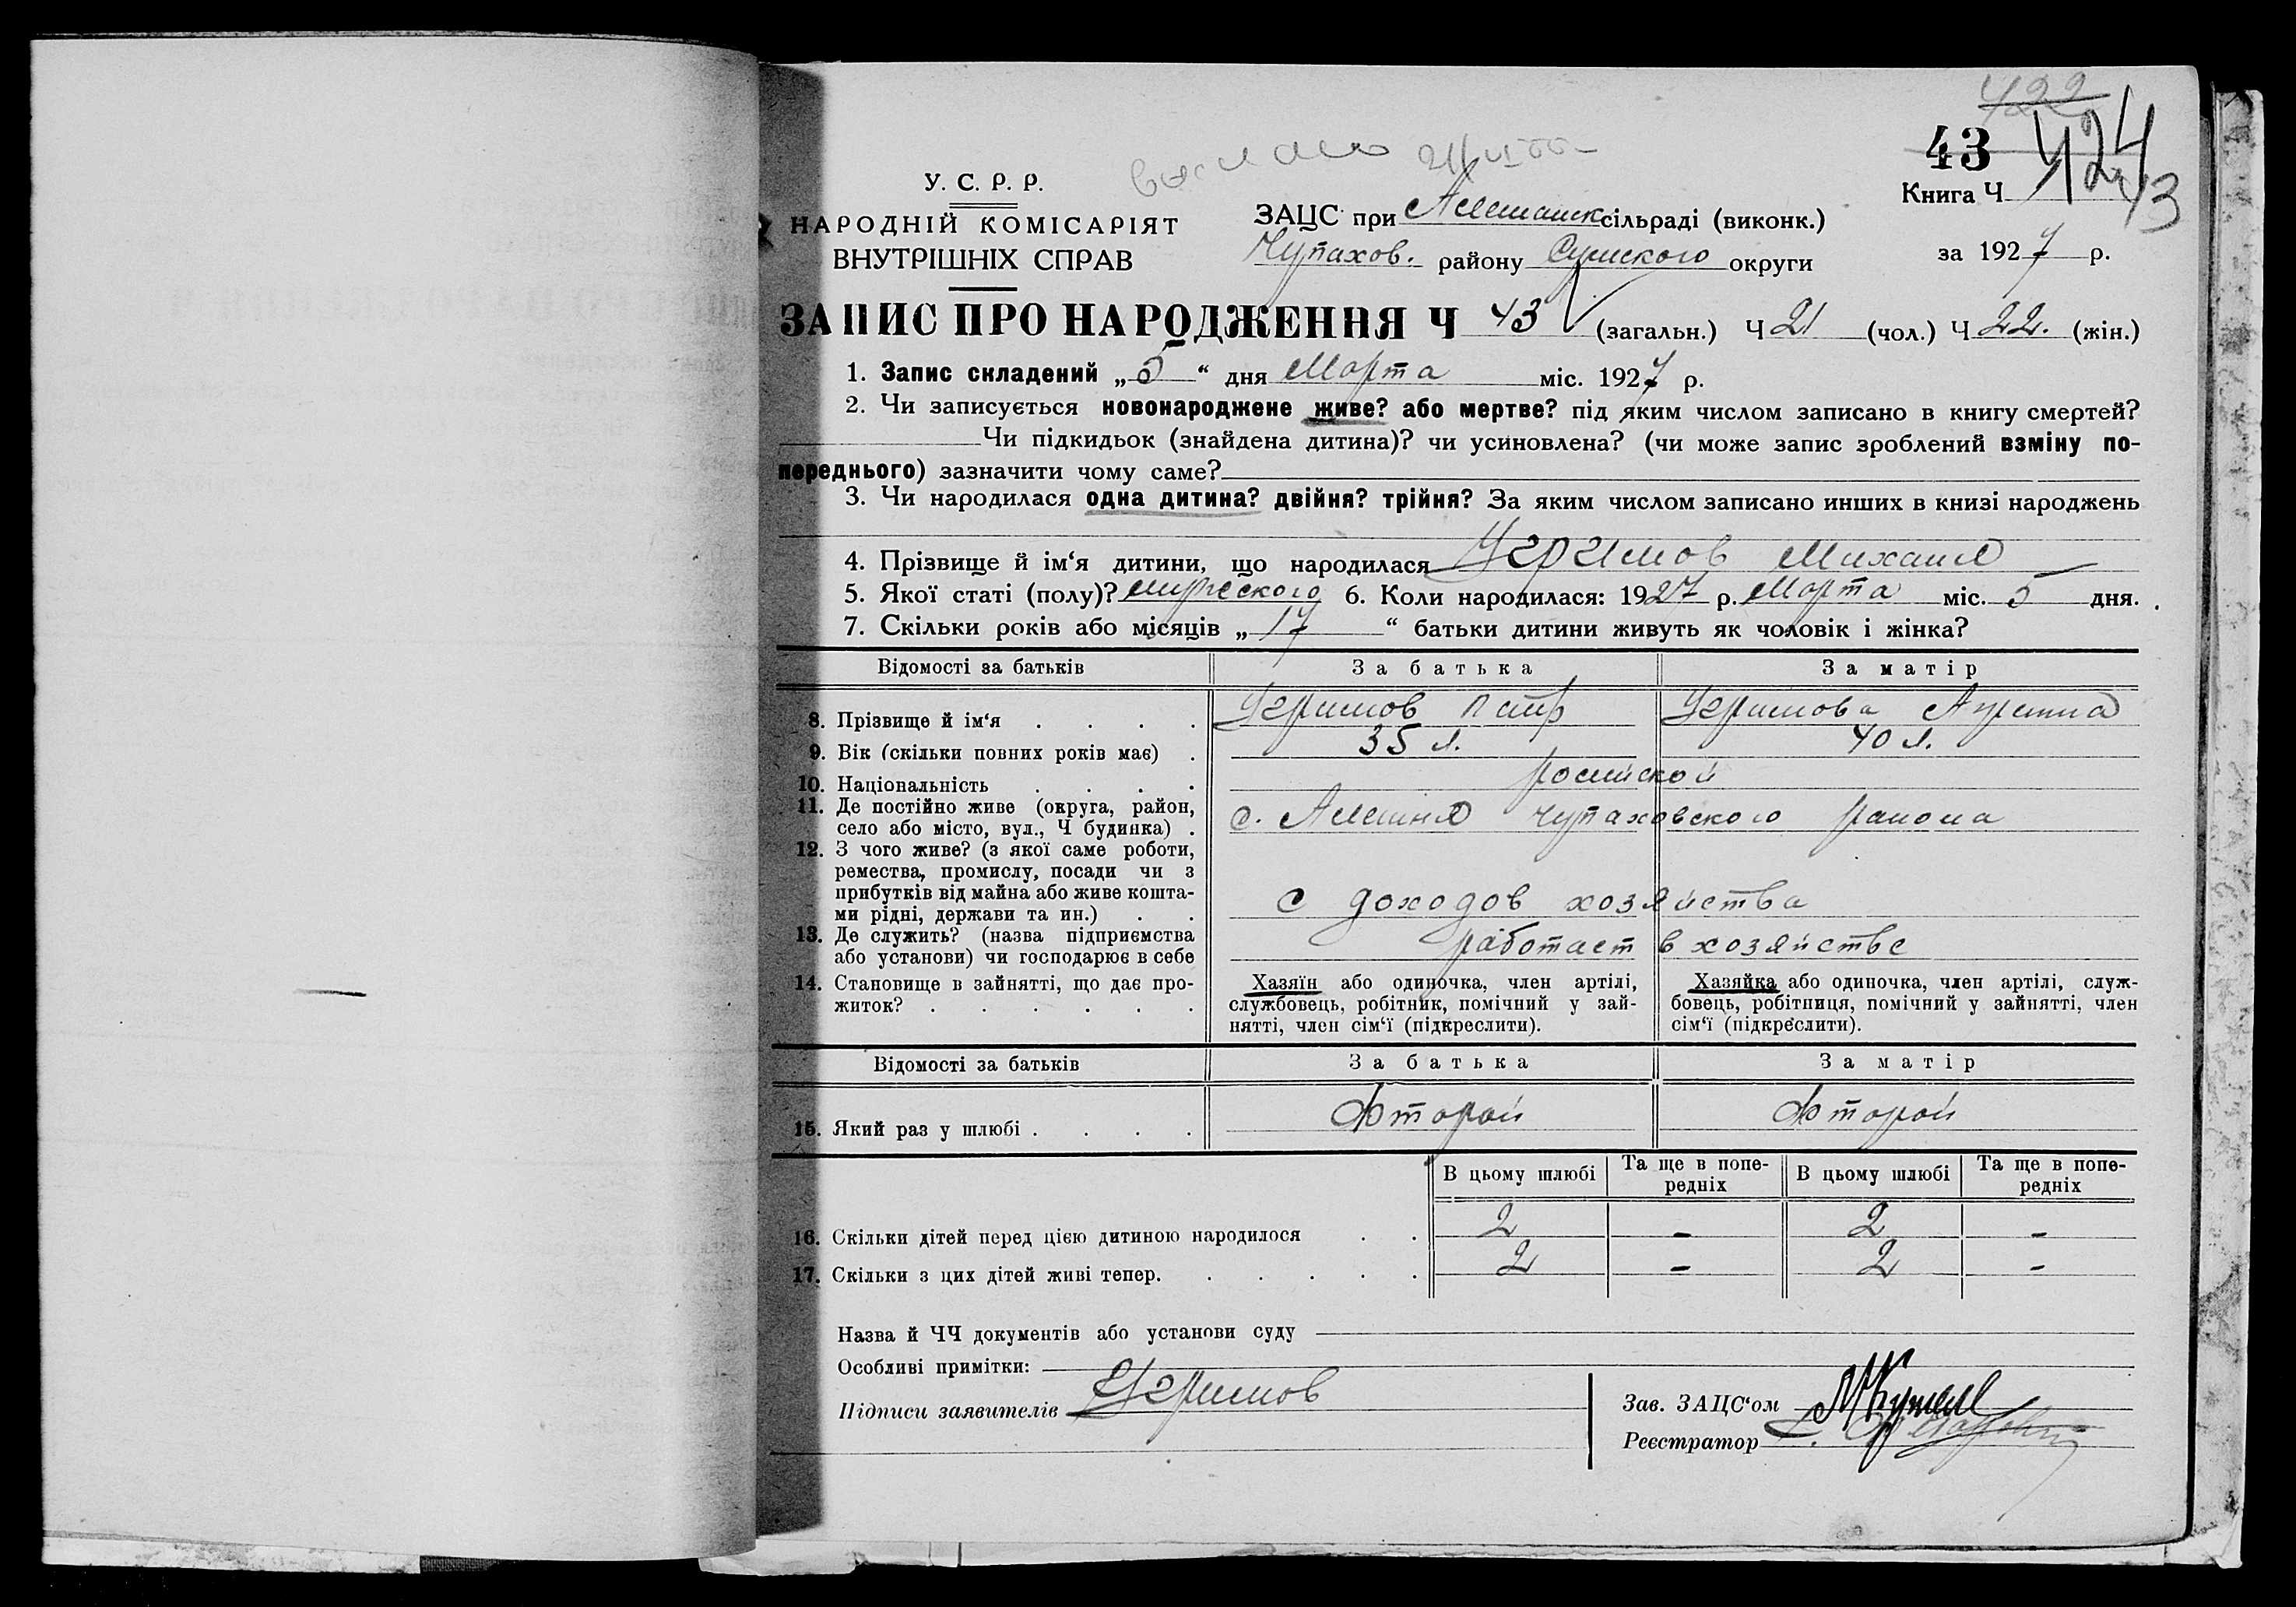 422
43 424
43
У. С. Р. Р.
НАРОДНІЙ КОМІСАРІЯТ
ВНУТРІШНІХ СПРАВ
Книга Ч
ЗАЦС при Алешанск сільраді (виконк.)
Чупахов. району Сумского округи
за 1927 р.
ЗАПИС ПРО НАРОДЖЕННЯ Ч 43 (загальн.) Ч 21 (чол.) Ч 22. (жін.)
1. Запис складений „5“ дня Марта міс. 1927 р.
2. Чи записується новонароджене живе? або мертве? під яким числом записано в книгу смертей?
Чи підкидьок (знайдена дитина)? чи усиновлена? (чи може запис зроблений взміну по-
переднього) зазначити чому саме?
3. Чи народилася одна дитина? двійня? трійня? За яким числом записано инших в книзі народжень
4. Прізвище й ім‘я дитини, що народилася Угримов Михаил
5. Якої статі (полу)? мужеского 6. Коли народилася: 1927 р. Марта міс. 5 дня.
7. Скільки років або місяців „17“ батьки дитини живуть як чоловік і жінка?
Відомості за батьків За батька За матір
8. Прізвище й ім‘я . . . . Угримов Петр Угримова
9. Вік (скільки повних років має) . 35 л. 40 л.
10. Національність . . . . росийской
11. Де постійно живе (округа, район,
село або місто, вул., Ч будинка) . с. Алешня Чупаховского района
12. З чого живе? (з якої саме роботи,
ремества, промислу, посади чи з
прибутків від майна або живе кошта-
ми рідні, держави та ин.) . . с доходов хозяйства
13. Де служить? (назва підприємства
або установи) чи господарює в себе работает в хозяйстве
14. Становище в зайнятті, що дає про-
житок? . . . . . .
Хазяїн або одиночка, член артілі,
службовець, робітник, помічний у зай-
нятті, член сім‘ї (підкреслити).
Хазяйка або одиночка, член артілі, служ-
бовець, робітниця, помічний у зайнятті, член
сім‘ї (підкреслити).
Відомості за батьків За батька За матір
15. Який раз у шлюбі . . . . Второй Второй
В цьому шлюбі Та ще в попе-
редніх В цьому шлюбі Та ще в попе-
редніх
16. Скільки дітей перед цією дитиною народилося . . 2 - 2 -
17. Скільки з цих дітей живі тепер. . . . . . 2 - 2 -
Назва й ЧЧ документів або установи суду
Особливі примітки:
Підписи заявителів Угримов
Зав. ЗАЦС‘ом
Реєстратор